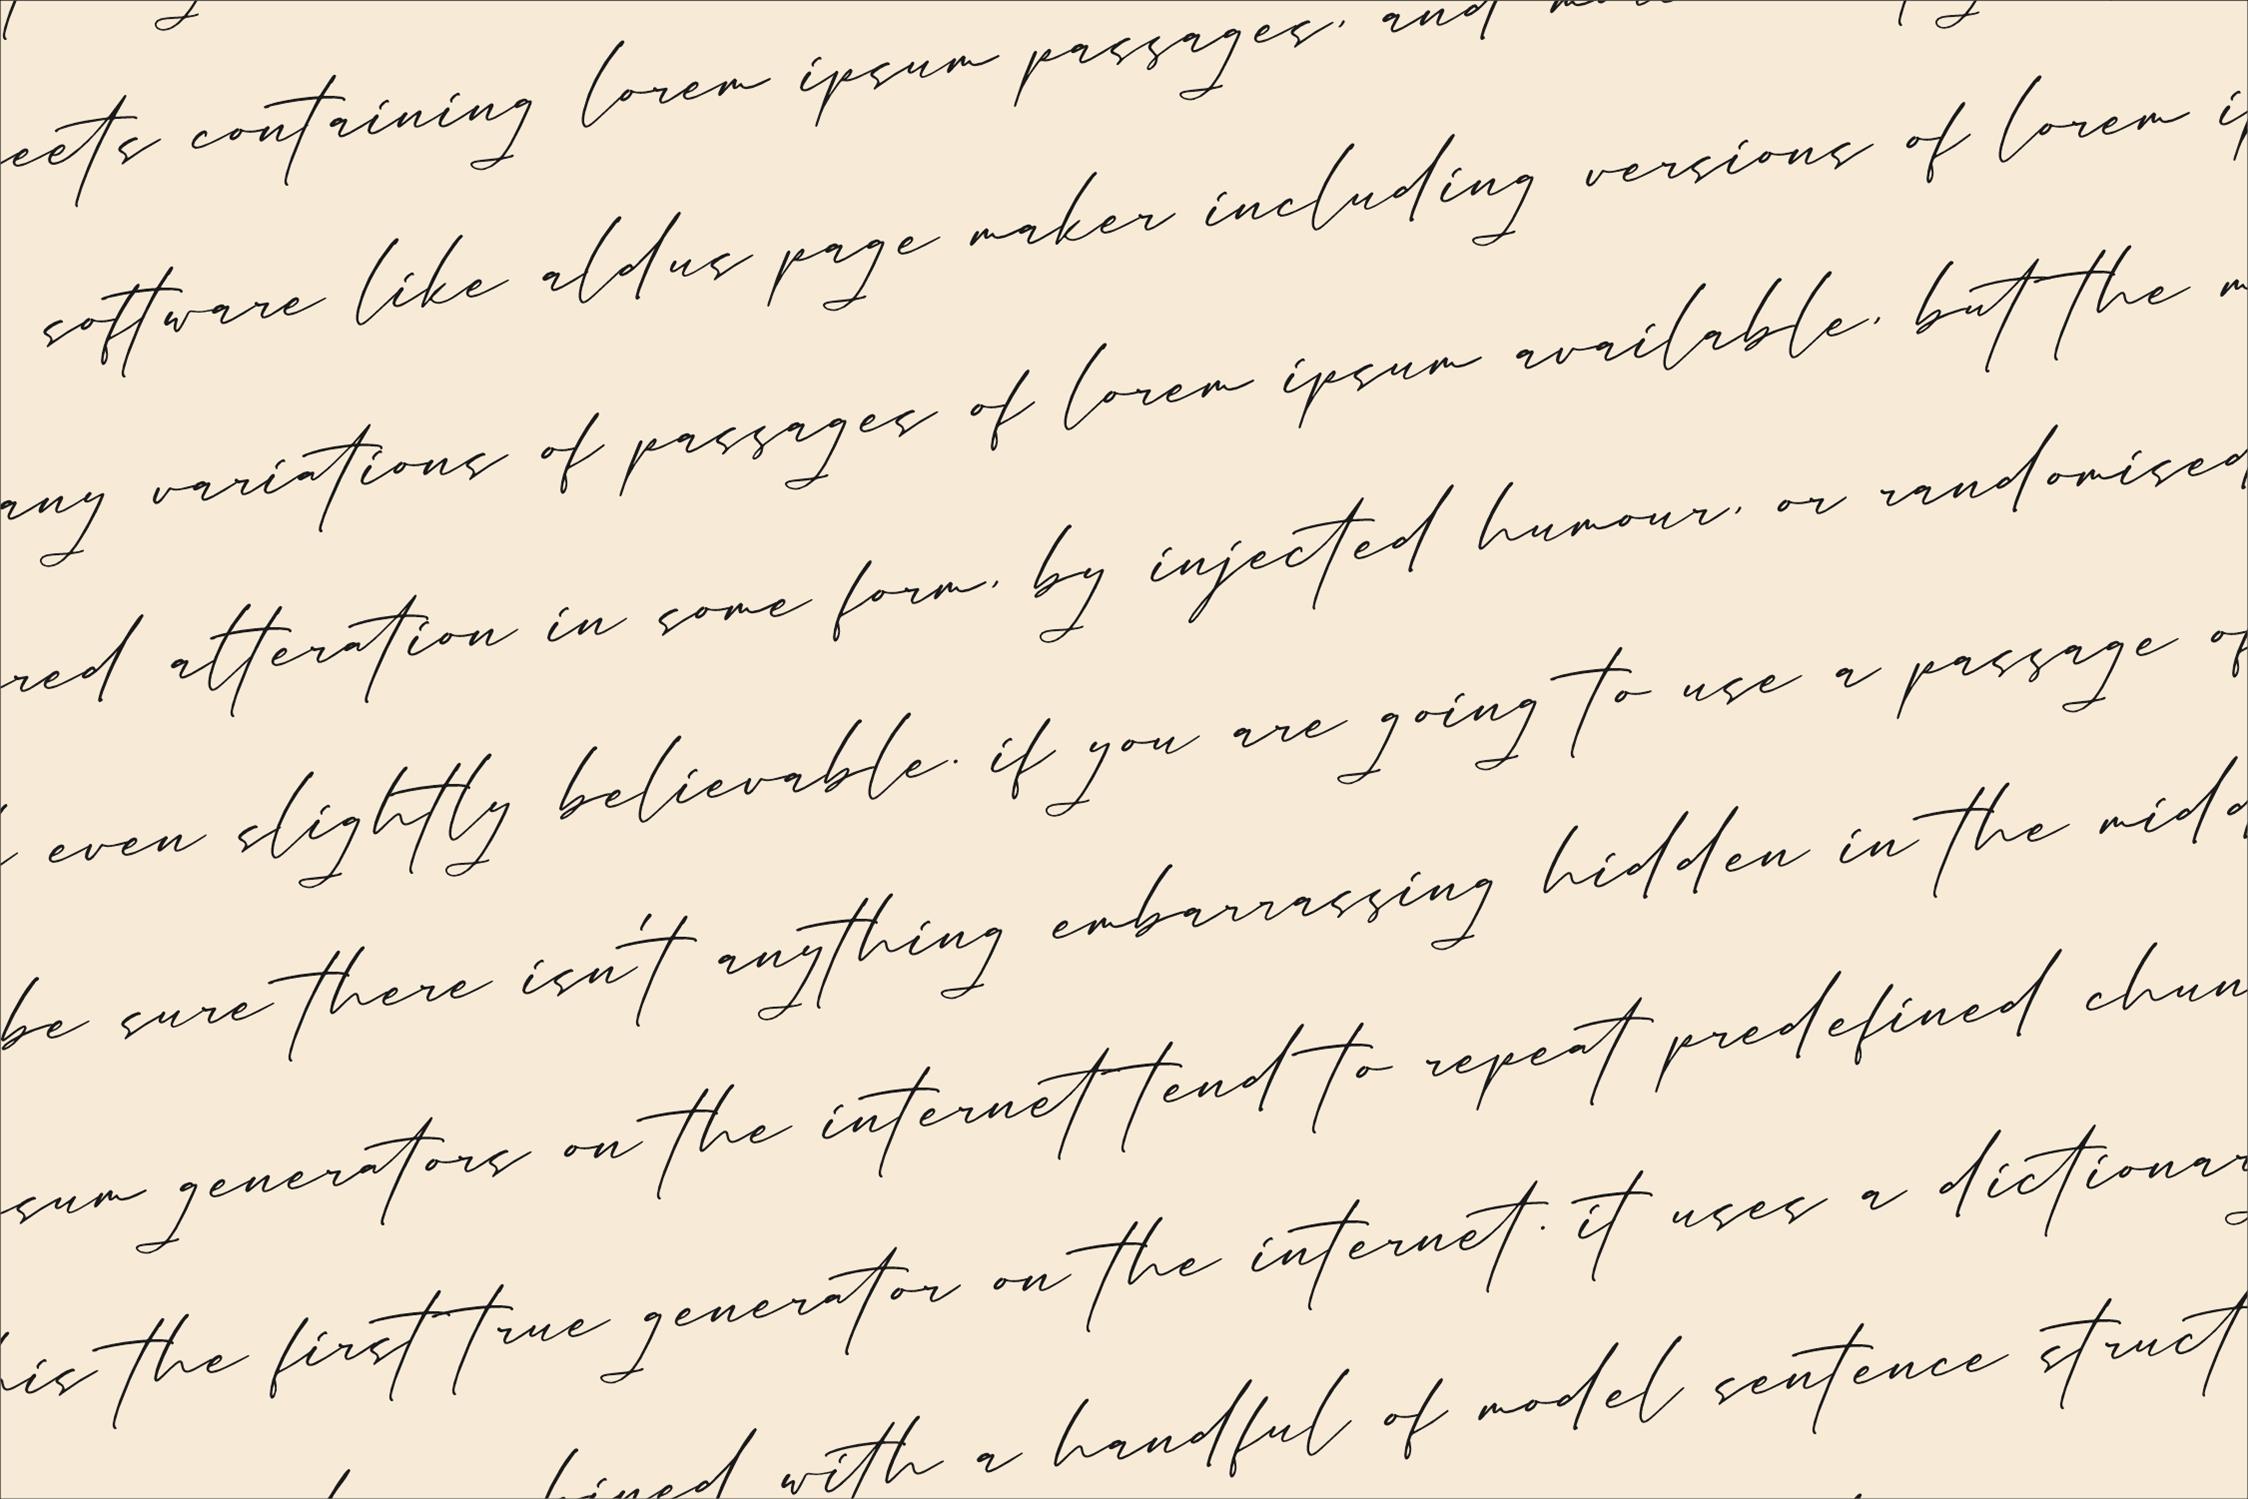 eets containing lorem ipsum passages, and
software like aldus page maker including versions of lorem ip
any variations of passages of lorem ipsum available, but the m
red alteration in some form, by injected humour, or randomised
even slightly believable. if you are going to use a passage of
be sure there isn't anything embarrassing hidden in the midd
sum generators on the internet tend to repeat predefined chun
his the first true generator on the internet. it uses a dictionary
bined with a handful of model sentence struct